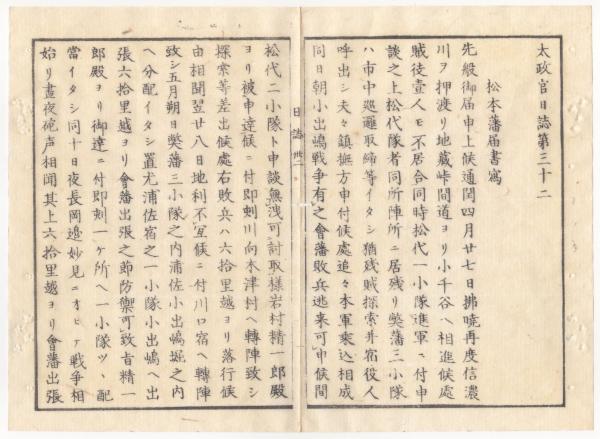 太政官日誌第三十二
松本藩届書寫
先般御届申上候通閏四月廿七日拂曉再度信濃
川ヲ押渡リ地蔵峠間道ヨリ小千谷ヘ相進候處
賊徒壹人モ不居合同時松代一小隊進軍ニ付申
談之上松代隊者同所陣所ニ居残リ弊藩三小隊
ハ市中巡邏取締等イタシ猶残賊探索并宿役人
呼出シ夫々鎮撫方申付候處追々本軍乘込相成
同日朝小出嶋戰争有之會藩敗兵逃来可申候間
日誌 卅二
松代二小隊ト申談無洩可討取様岩村精一郎殿
ヨリ被申達候ニ付即刻川向木津村ヘ轉陣致シ
探索等差出候處右敗兵ハ六拾里越ヨリ落行候
由相聞翌廿八日地利不宜候ニ付川口宿ヘ轉陣
致シ五月朔日弊藩三小隊之内浦佐小出嶋堀之内
ヘ分配イタシ置尤浦佐宿之一小隊小出嶋ヘ出
張六拾里越ヨリ會藩出張之節防禦可致旨精一
郎殿ヨリ御達ニ付即刻一ケ所ヘ一小隊ツヽ配
當イタシ同十日夜長岡邉妙見ニオヒテ戰争相
始リ晝夜砲声相聞其上六拾里越ヨリ會藩出張